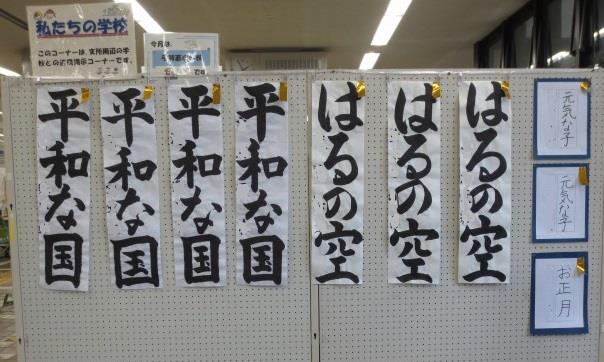 私たちの学校
このコーナーは、支所周辺の学
校との連携掲示コーナーです。
今月は、
平和な国
平和な国
平和な国
平和な国
はるの空
はるの空
はるの空
元気な子
元気な子
お正月